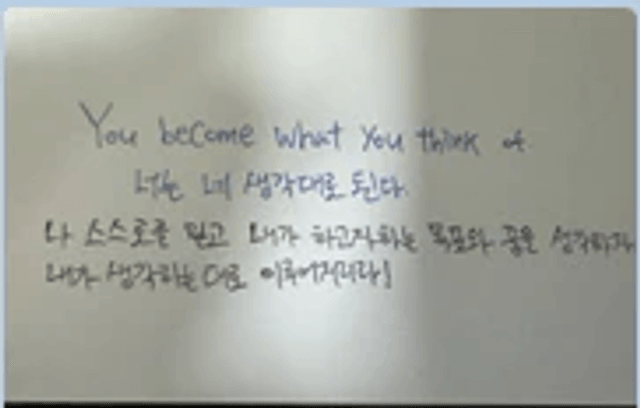 You become what you think of
너는 네 생각대로 된다.
나 스스로를 믿고 내가 하고자하는 목표와 꿈을 생각하자
내가 생각하는대로 이루어지리라!